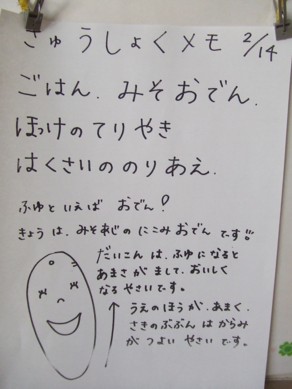 きゅうしょくメモ 2/14
ごはん. みそおでん.
ほっけのてりやき
はくさいののりあえ.
ふゆといえば おでん!
きょうは、みそあじの にこみ おでん です!!
だいこん は、ふゆ に なると
あまさ が まして、おいしく
なる やさい です。
うえのほう が、あまく、
さきの ぶぶん は からみ
が つよい やさい です。